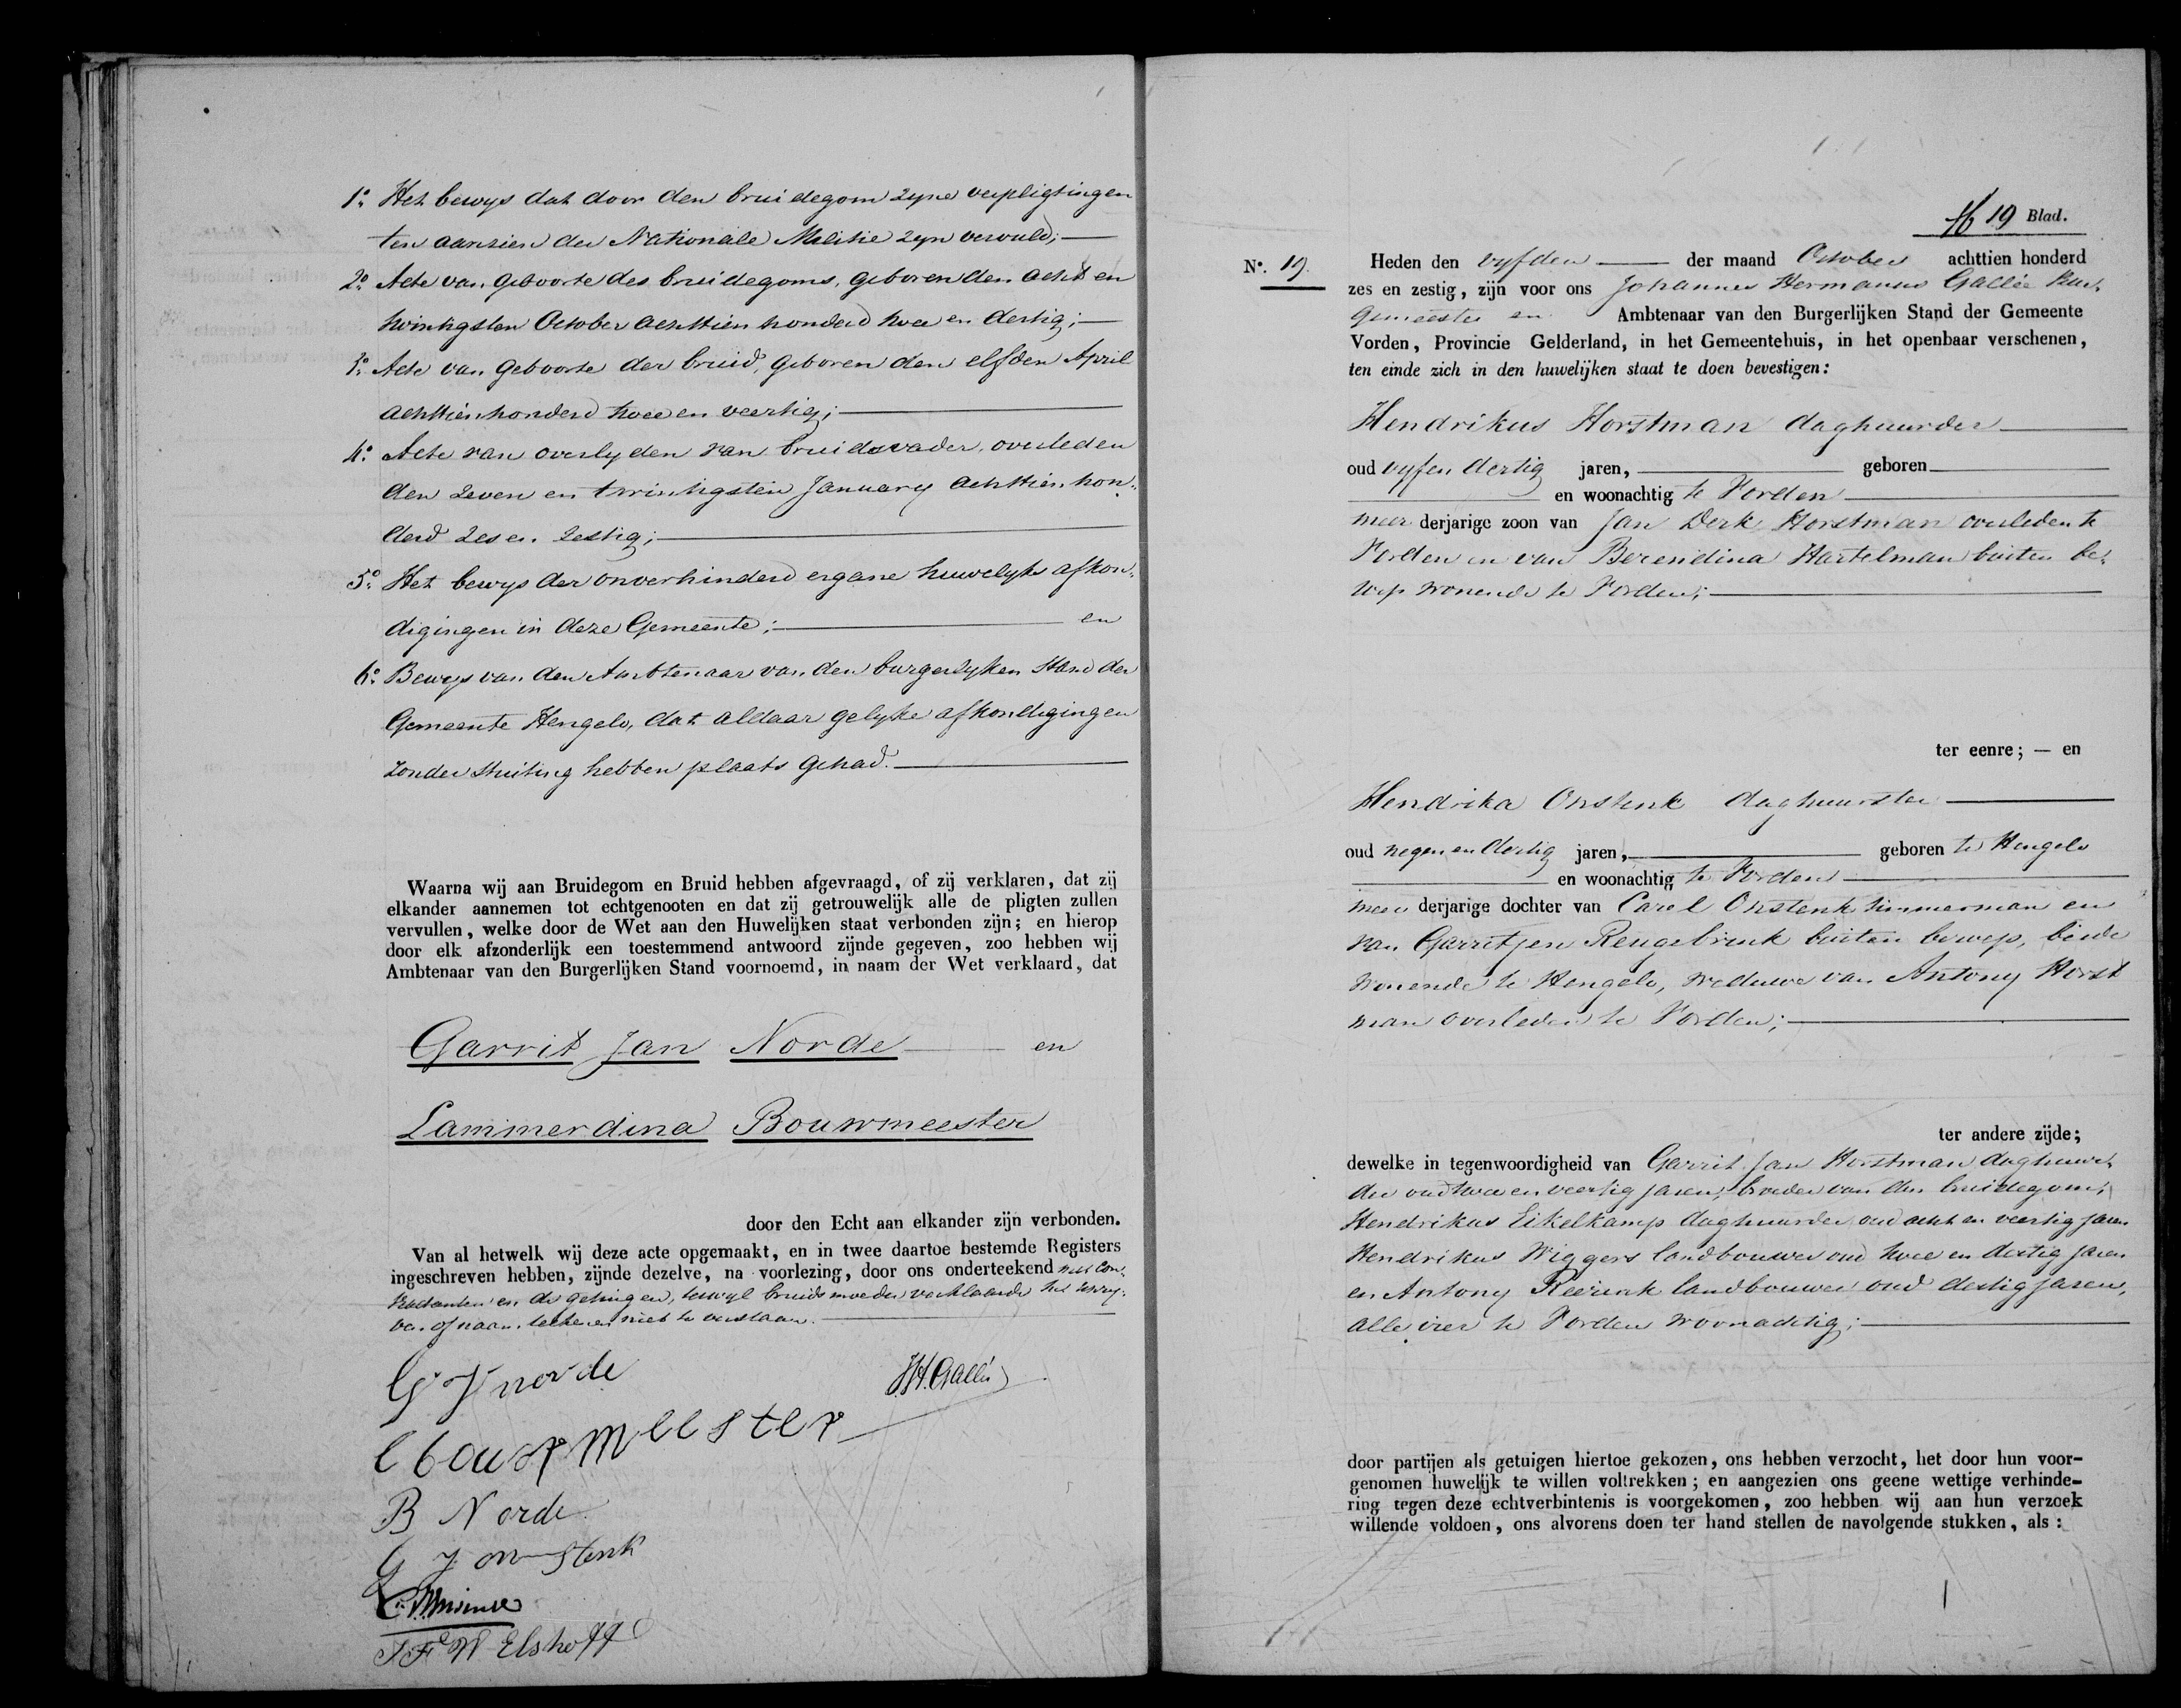 1º. Het bewys dat door den bruidegom zyne verpligtingen
ten aanzien der Nationale Militie zyn vervuld;
2º. Acte van geboorte des bruidegoms, geboren den acht en
twintigsten October achttien honderd twee en dertig;
3º. Acte van geboorte der bruid, geboren den elfden April
achttienhonderd twee en veertig;
4º. Acte van overlyden van bruidsvader, overleden
den zeven en twintigsten January achttien hon-
derd zes en zestig;
5º. Het bewys der onverhinderd ergane huwelyks afkon-
digingen in deze Gemeente; en
6º. Bewys van den Ambtenaar van den burgerlyken Stand der
Gemeente Hengelo, dat aldaar gelyke afkondigingen
zonder stuiting hebben plaats gehad.
Waarna wij aan Bruidegom en Bruid hebben afgevraagd, of zij verklaren, dat zij
elkander aannemen tot echtgenooten en dat zij getrouwelijk alle de pligten zullen
vervullen, welke door de Wet aan den Huwelijken staat verbonden zijn; en hierop
door elk afzonderlijk een toestemmend antwoord zijnde gegeven, zoo hebben wij
Ambtenaar van den Burgerlijken Stand voornoemd, in naam der Wet verklaard, dat
Garrit Jan Norde en
Lammerdina Bouwmeester
door den Echt aan elkander zijn verbonden.
Van al hetwelk wij deze acte opgemaakt, en in twee daartoe bestemde Registers
ingeschreven hebben, zijnde dezelve, na voorlezing, door ons onderteekend met Com-
paranten en de getuigen, terwyl bruids moeder verklaarde het schry-
ven of naam teekenen niet te verstaan.
G J norde
J.H. Gallée
l bouwmeester
B Norde
G J onstenk
J F W Elshoff
16 19 Blad.
Nº. 19. Heden den vyfden der maand October achttien honderd
zes en zestig, zijn voor ons Johannes Hermanus Gallée Bur-
gemeester en Ambtenaar van den Burgerlijken Stand der Gemeente
Vorden, Provincie Gelderland, in het Gemeentehuis, in het openbaar verschenen,
ten einde zich in den huwelijken staat te doen bevestigen:
Hendrikus Horstman daghuurder
oud vyf en dertig jaren, geboren
en woonachtig te Vorden
meerderjarige zoon van Jan Derk Horstman overleden te
Vorden en van Berendina Hartelman buiten be-
roep wonende te Vorden;
ter eenre; — en
Hendrika Onstenk daghuurster
oud negen en dertig jaren, geboren te Hengelo
en woonachtig te Vorden
meerderjarige dochter van Carel Onstenk timmerman en
van Garritjen Rengebrink buiten beroep, beide
wonende te Hengelo, weduwe van Antony Horst
man overleden te Vorden;
ter andere zijde;
dewelke in tegenwoordigheid van Garrit Jan Horstman daghuur-
der oud twee en veertig jaren, broeder van den bruidegom,
Hendrikus Eikelkamp daghuurder, oud acht en veertig jaren
Hendrikus Wiggers landbouwer oud twee en dertig jaren
en Antony Reerink landbouwer oud dertig jaren,
alle vier te Vorden woonachtig;
door partijen als getuigen hiertoe gekozen, ons hebben verzocht, het door hun voor-
genomen huwelijk te willen voltrekken; en aangezien ons geene wettige verhinde-
ring tegen deze echtverbintenis is voorgekomen, zoo hebben wij aan hun verzoek
willende voldoen, ons alvorens doen ter hand stellen de navolgende stukken, als: